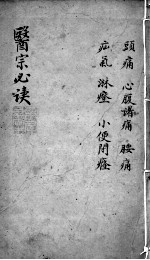 頭痛 心腹諸痛 腰痛
疝氣 淋證 小便閉癃
醫宗必讀